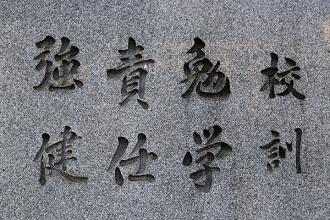 校訓
勉学
責仕
強健